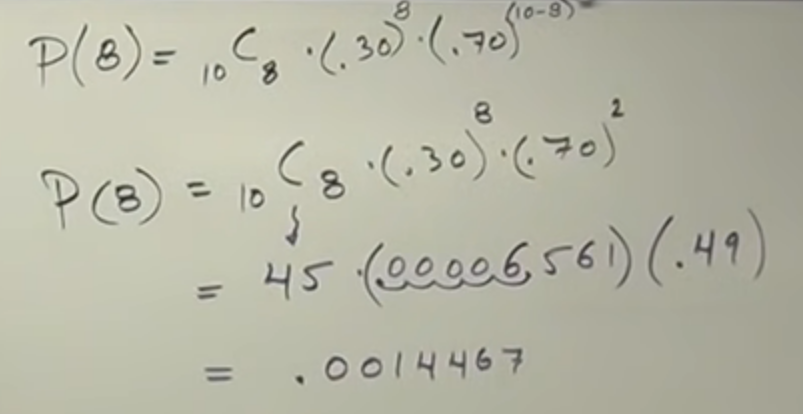 P(8) = ₁₀C₈ · (.30)⁸ · (.70)⁽¹⁰⁻⁸⁾
P(8) = ₁₀C₈ · (.30)⁸ · (.70)²
= 45 · (.00006,561) (.49)
= .0014467